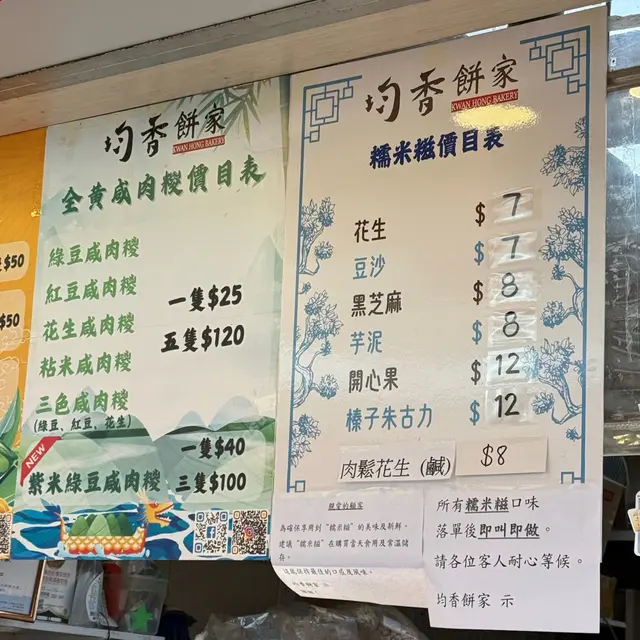 $50
$50
均香餅家
KWAN HONG BAKERY
全黄咸肉糉價目表
綠豆咸肉糉
紅豆咸肉糉
花生咸肉糉
粘米咸肉糉
三色咸肉糉
(綠豆、紅豆、花生)
一隻$25
五隻$120
NEW
紫米綠豆咸肉糉
一隻$40
三隻$100
均香餅家
KWAN HONG BAKERY
糯米糍價目表
花生 $ 7
豆沙 $ 7
黑芝麻 $ 8
芋泥 $ 8
開心果 $ 12
榛子朱古力 $ 12
肉鬆花生 (鹹) $8
親愛的顧客
為確保享用到"糯米糍"的美味及新鮮,
建議"糯米糍"在購買當天食用及常温儲
存。
均香餅家 示
所有糯米糍口味
落單後即叫即做。
請各位客人耐心等候。
均香餅家 示